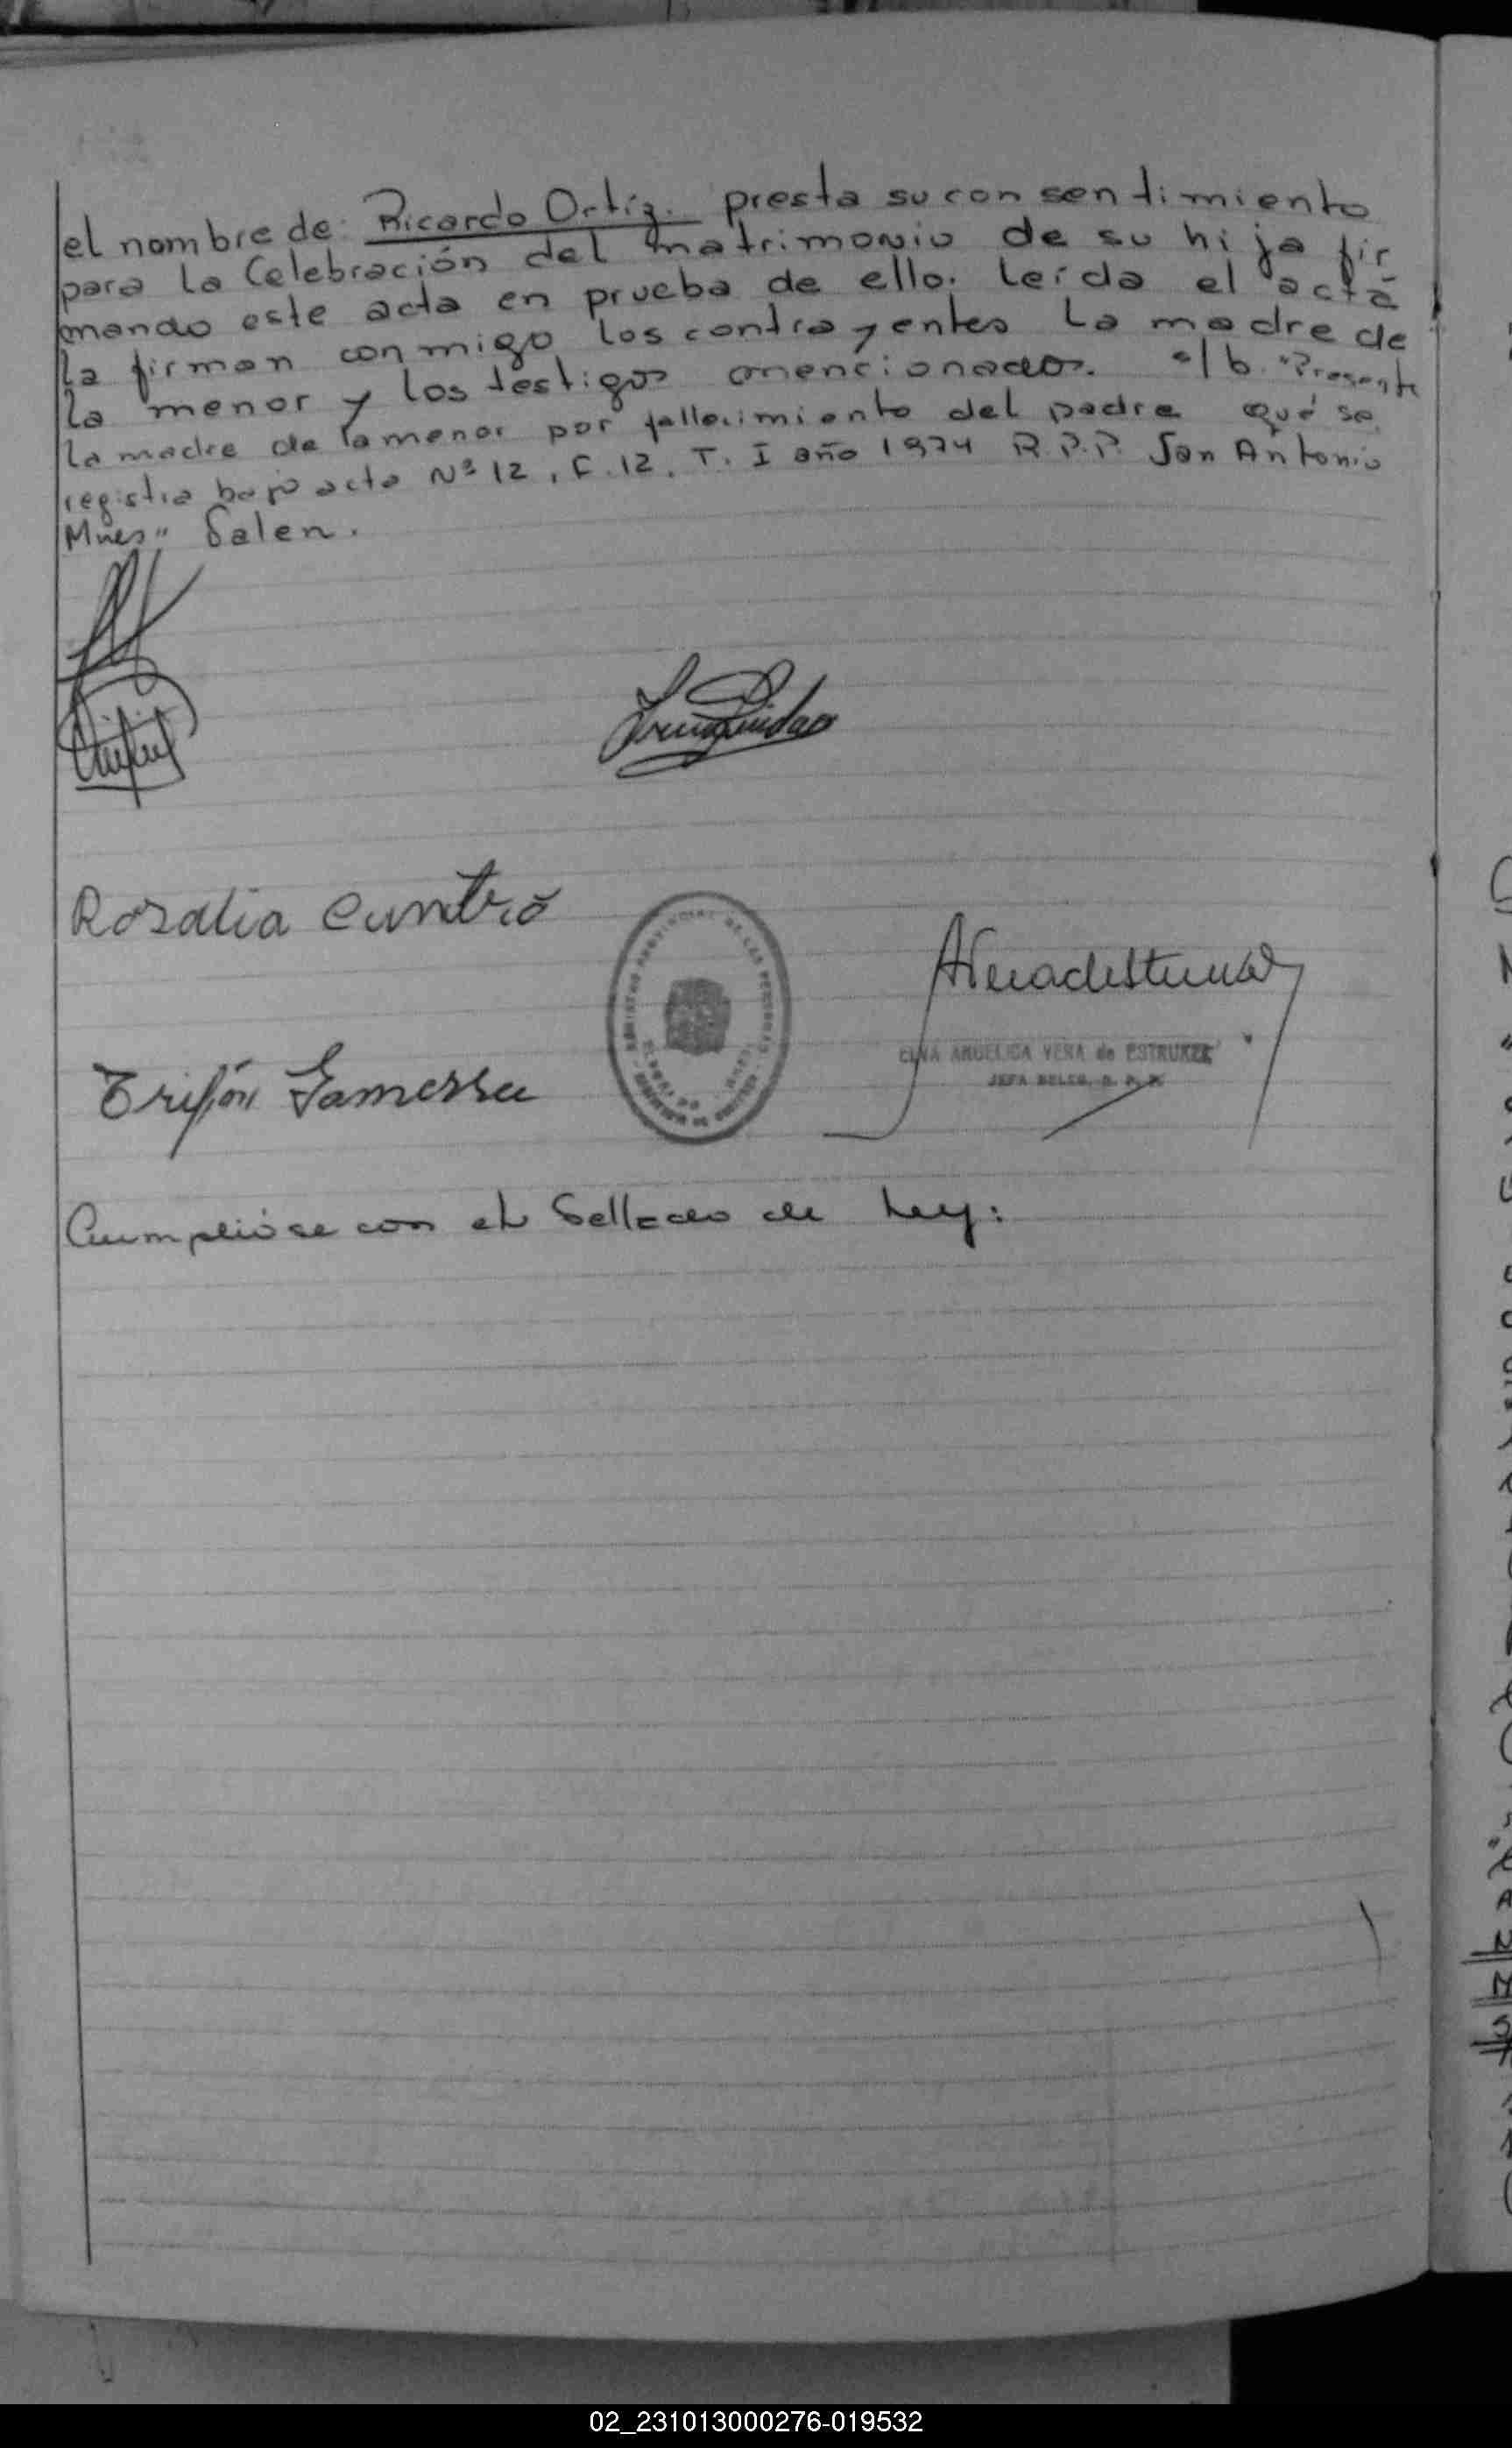 el nombre de: Ricardo Ortíz. presta su consentimiento
para la Celebración del matrimonio de su hija fir
mando este acta en prueba de ello. Leída el acta
la firman conmigo los contrayentes La madre de
la menor y los testigos mencionados. s/b. "Presente
la madre de la menor por fallecimiento del padre qué se
registra bajo acta Nº 12, F. 12, T. I año 1974 R.P.P. San Antonio
Mnes" Valen.
Rosalia
Trifón
ELVA ANGELICA VERA de ESTRUKEL
JEFA DELEG. R. P. P.
Cumplióse con el Sellado de Ley:
02_231013000276-019532